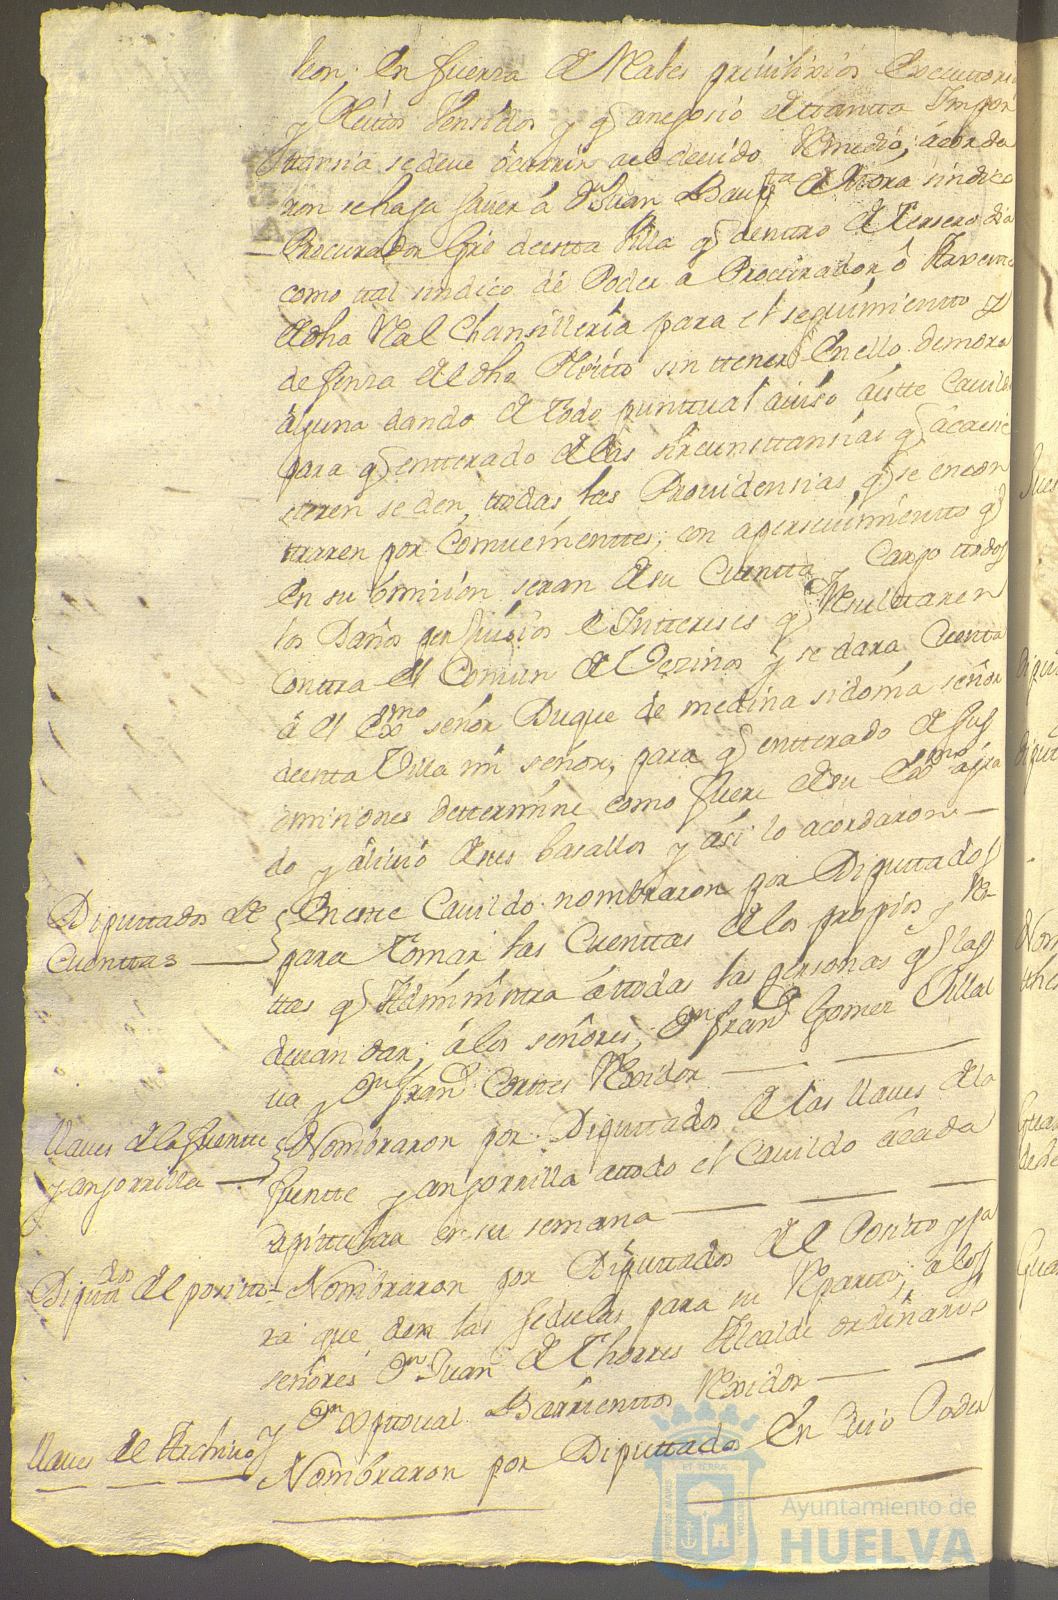 leon. En fuerza de Reales privilixios Executori
y Pleitos Vensidos y q anegosio de tantta Impor
ttansia se deve ocurrir a el devido Remedio; acorda
ron se haga saver a Dn Juan Baupta de Mora sindico
Procurador Grl de estta Villa q denttro de Tersero dia
como ttal sindico dé Poder a Procurador
de dha Real Chansilleria para el seguimientto y
defenza de el dho Pleitto sin ttener En ello demora
alguna dando de Todo punttual aviso a estte Cavild
para q entterado de las sircunsttansias q
se den ttodas las Providensias q se encon
ttraren por Comveniénttes; con apersevimientto q
En su omision seran de su Cuentta y Cargo ttodos
los Daños perjuisios e Intereses q Resulttaren
Conttra el Comun de Vezinos y se dara Cuentta
á el Exmo señor Duque de medina sidonia señor
de estta Villa mi señor, para q entterado de sus
omisiones dettermine como fuere de su Exmo agra
do y alivio de sus basallos y asi lo acordaron
Diputtados de
Cuenttas
En estte Cavildo nombraron por Diputtados
para Tomar las Cuenttas de los propios y Ren
ttas q Administra a ttodas las personas q las
devan dar; a los señores, Dn Frando Gomez Villal
va y Dn Frando Corttes Rexidor
llaves de la fuentte
y anjorrilla
Nombraron por Diputtados de las llaves de la
fuentte y anjorrilla a ttodo el Cavildo a cada
Capittular en su semana
Diputtados del positto
Nombraron por Diputtados de el Positto y pa
ra que den las sedulas para su Repartto; a los
señores Dn Juan de Thorres Alcalde ordinario
y Dn Xptoval Barrienttos Rexidor
llaves de el Archivo
Nombraron por Diputtados En Cuio Poder
Ayuntamiento de
HUELVA